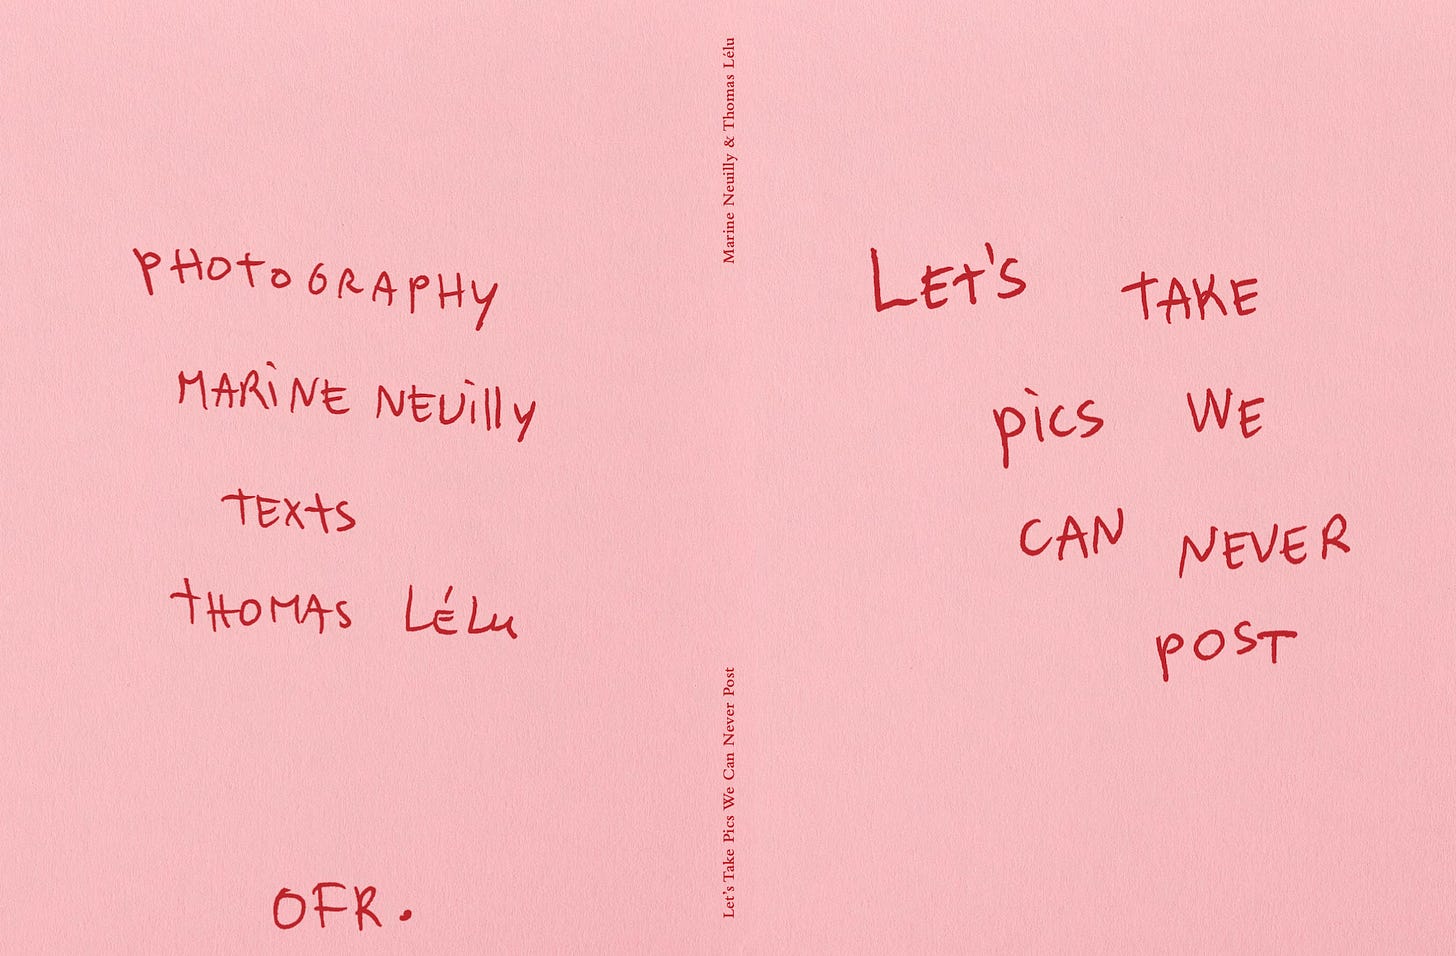 PHOTOGRAPHY
MARiNE NEUilly
TEXTS
THOMAS LÉLu
OFR.
Marine Neuilly & Thomas Lélu
Let's Take Pics We Can Never Post
LET'S TAKE
pics WE
CAN NEVER
POST